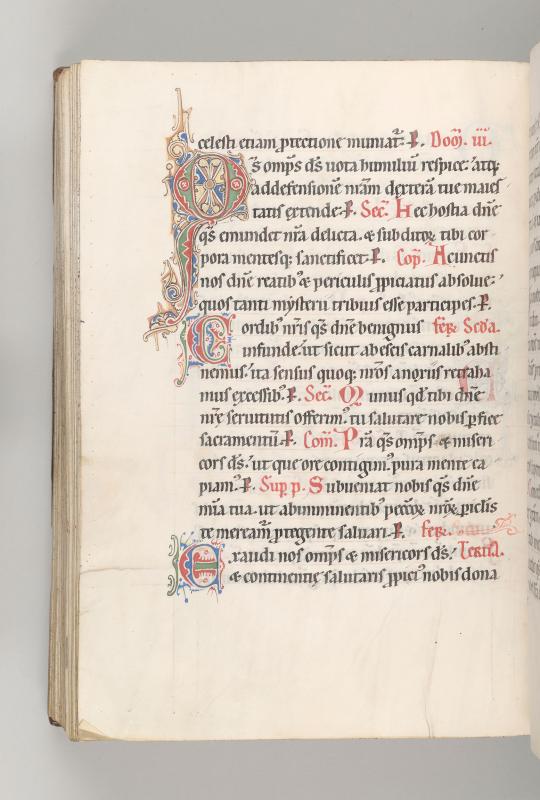 celesti etiam ꝑtectione muniat᷑. P. Dom̄. iii.
Q̄s omp̄s d̄s uota humiliū respice: atq;
ad defensionē nr̄am dexterā tue maies
tatis extende. P. Secr̄. Hec hostia dn̄e
q̄s emundet nr̄a delicta. & subditoꝝ tibi cor
pora mentesq; sanctificet. P. Cop̄. A cunctis
nos dn̄e reatib; & periculis ꝓpiciatus absolue:
quos tanti mysterii tribuis esse participes. P.
Cordib; nr̄is q̄s dn̄e benignus fer̄. Sc̄da.
infunde. ut sicut ab escis carnalib; absti
nemus. ita sensus quoq; nr̄os a noxiis retraha
mus excessib;. P. Secr̄. Munus qd̄ tibi dn̄e
nr̄e seruitutis offerim᷒. tu salutare nobis ꝑfice
sacramentū. P. Com̄. Pr̄a q̄s omp̄s & miseri
cors d̄s. ut que ore contigim᷒. pura mente ca
piam᷒. P. Sup̄. p̄. Subueniat nobis q̄s dn̄e
mīa tua. ut ab imminentib; pecc̄oꝝ nr̄oꝝ ꝑiclis
te meream᷑ ꝓtegente saluari. P. fer̄.
Exaudi nos omp̄s & misericors d̄s. Tertia.
& continentię salutaris ꝓpici᷒ nobis dona